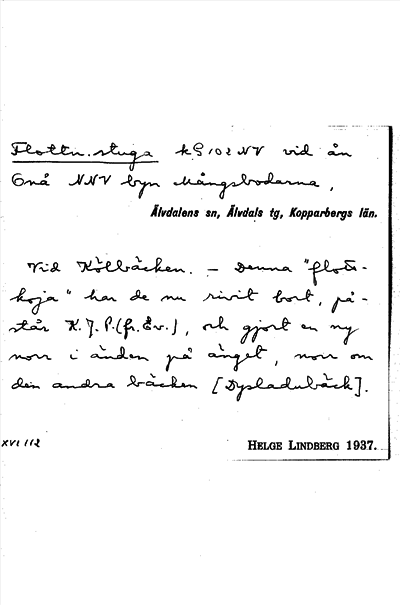 Flottn.stuga kg 102 NV vid ån
Gnå NNV byn Mångsbodarna,
Älvdalens sn, Älvdals tg, Kopparbergs län.
Vid Kölbäcken. – Denna "flott-
koja" har de nu rivit bort, på-
står K.J.P. (fr. Ev.), och gjort en ny
norr i änden på änget, norr om
den andra bäcken [Dysladubäck].
XVI 112
HELGE LINDBERG 1937.